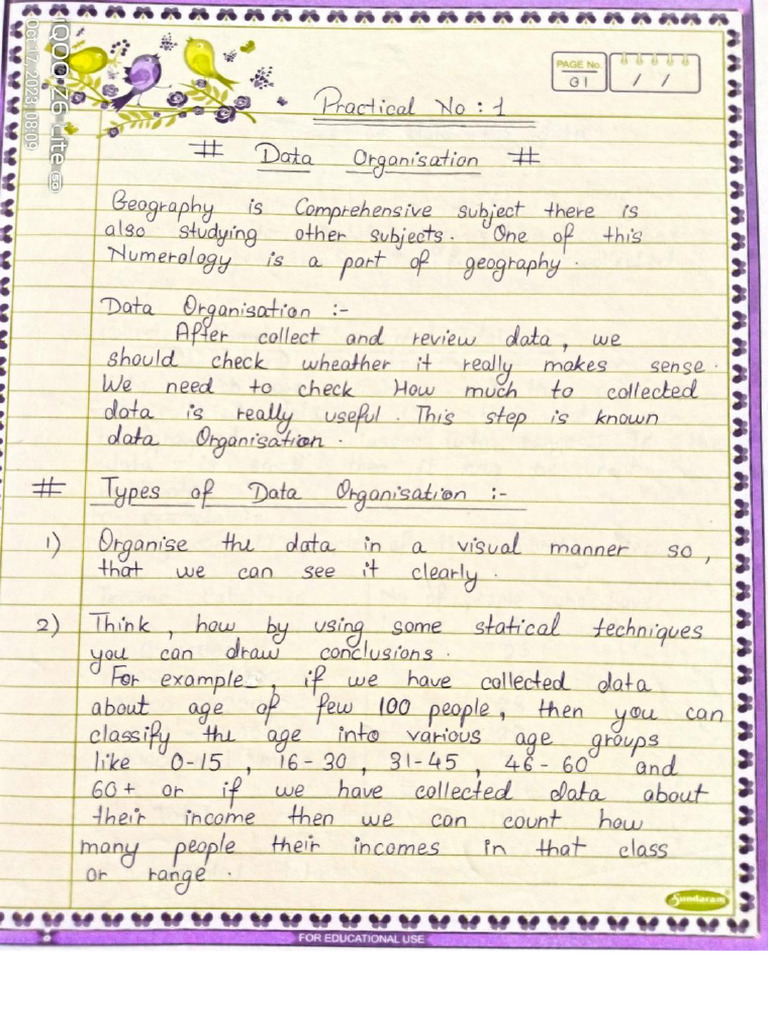 iQOO Z6 Lite 5G
Oct 17, 2023, 08:09
PAGE No.
01
/ /
Practical No : 1
# Data Organisation #
Geography is Comprehensive subject there is
also studying other subjects. One of this
Numerology is a part of geography.
Data Organisation :-
After collect and review data, we
should check wheather it really makes sense.
We need to check How much to collected
data is really useful. This step is known
data Organisation.
# Types of Data Organisation :-
1) Organise the data in a visual manner so,
that we can see it clearly.
2) Think, how by using some statical techniques
you can draw conclusions.
For example_, if we have collected data
about age of few 100 people, then you can
classify the age into various age groups
like 0-15, 16-30, 31-45, 46-60 and
60+ or if we have collected data about
their income then we can count how
many people their incomes in that class
or range.
Sundaram
FOR EDUCATIONAL USE